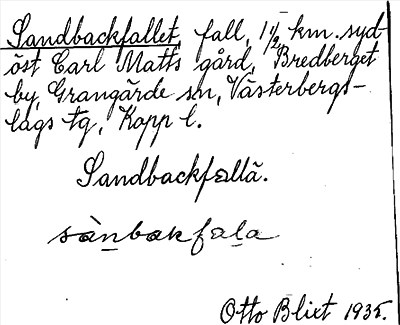 Sandbackfallet, fall, 1 1/2 km. syd-
öst Carl Matts gård, Bredberget
by, Grangärde sn, Västerbergs-
lags tg, Kopp l.
Sandbackfallä.
sànbakfala
Otto Blixt 1935.